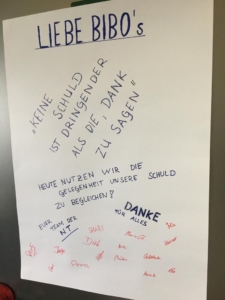 LIEBE BIBO's
"KEINE
SCHULD
IST DRINGENDER
ALS DIE, DANK
ZU SAGEN"
HEUTE NUTZEN WIR DIE
GELEGENHEIT UNSERE SCHULD
ZU BEGLEICHEN!
EUER
TEAM DER
NT
DANKE
FÜR ALLES